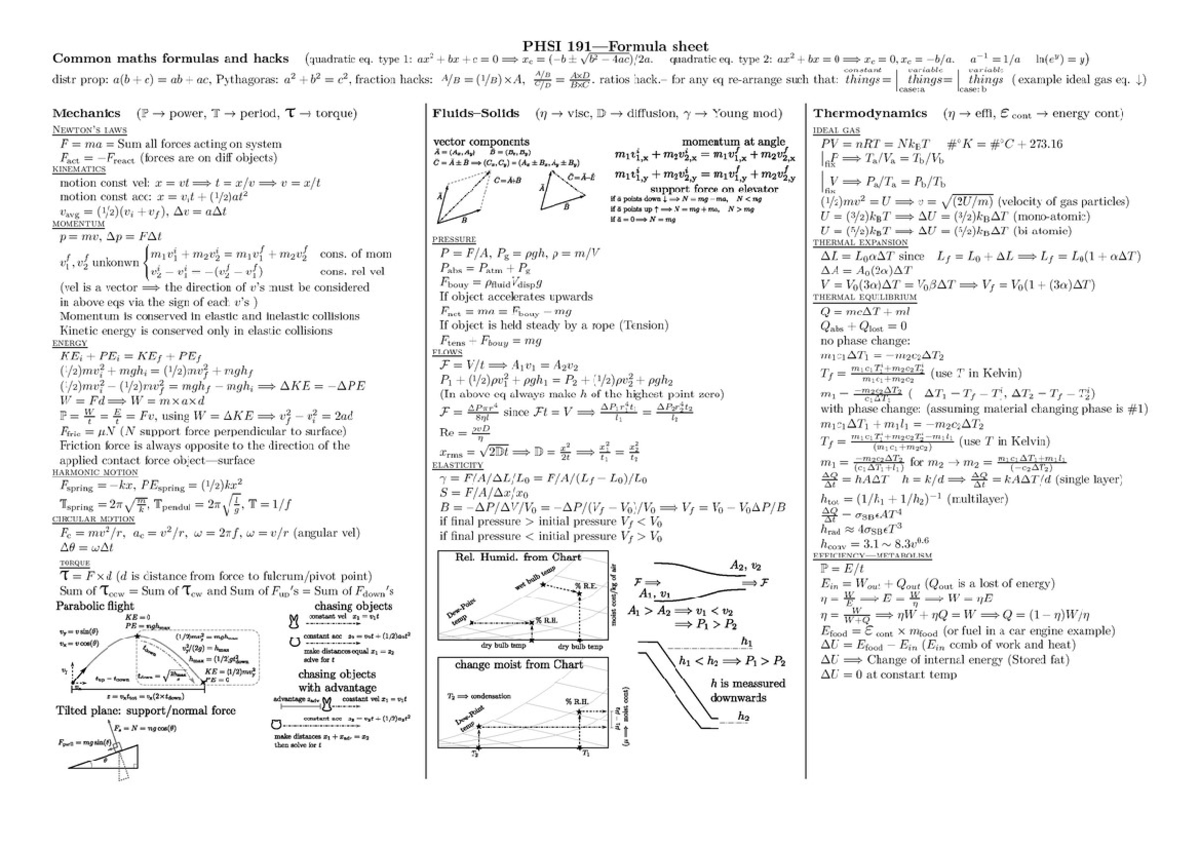 PHSI 191—Formula sheet
Common maths formulas and hacks (quadratic eq. type 1: ax² + bx + c = 0 ⟹ xₑ = (−b ± √(b² − 4ac))/2a. quadratic eq. type 2: ax² + bx = 0 ⟹ xₑ = 0, xₑ = −b/a. a⁻¹ = 1/a ln(eʸ) = y)
distr prop: a(b + c) = ab + ac, Pythagoras: a² + b² = c², fraction hacks: A/B = (1/B)×A, (A/B)/(C/D) = (A×D)/(B×C). ratios hack.– for any eq re-arrange such that: constant things = |case:a variable things = |case:b variable things (example ideal gas eq. ↓)
Mechanics (ℙ → power, 𝕋 → period, τ → torque)
NEWTON'S LAWS
F = ma = Sum all forces acting on system
F_act = −F_react (forces are on diff objects)
KINEMATICS
motion const vel: x = vt ⟹ t = x/v ⟹ v = x/t
motion const acc: x = vᵢt + (1/2)at²
v_avg = (1/2)(vᵢ + v_f), Δv = aΔt
MOMENTUM
p = mv, Δp = FΔt
v₁ᶠ, v₂ᶠ unkonwn { m₁v₁ⁱ + m₂v₂ⁱ = m₁v₁ᶠ + m₂v₂ᶠ cons. of mom
v₂ⁱ − v₁ⁱ = −(v₂ᶠ − v₁ᶠ) cons. rel vel
(vel is a vector ⟹ the direction of v's must be considered
in above eqs via the sign of each v's )
Momentum is conserved in elastic and inelastic collisions
Kinetic energy is conserved only in elastic collisions
ENERGY
KEᵢ + PEᵢ = KE_f + PE_f
(1/2)mvᵢ² + mghᵢ = (1/2)mv_f² + mgh_f
(1/2)mvᵢ² − (1/2)mv_f² = mgh_f − mghᵢ ⟹ ΔKE = −ΔPE
W = Fd ⟹ W = m×a×d
ℙ = W/t = E/t = Fv, using W = ΔKE ⟹ v_f² − vᵢ² = 2ad
F_fric = μN (N support force perpendicular to surface)
Friction force is always opposite to the direction of the
applied contact force object—surface
HARMONIC MOTION
F_spring = −kx, PE_spring = (1/2)kx²
𝕋_spring = 2π√(m/k), 𝕋_pendul = 2π√(l/g), 𝕋 = 1/f
CIRCULAR MOTION
F_c = mv²/r, a_c = v²/r, ω = 2πf, ω = v/r (angular vel)
Δθ = ωΔt
TORQUE
τ = F×d (d is distance from force to fulcrum/pivot point)
Sum of τ_ccw = Sum of τ_cw and Sum of F_up's = Sum of F_down's
Parabolic flight
KE = 0
PE = mgh_max
v_y = v sin(θ)
v_x = v cos(θ)
(1/2)mv_y² = mgh_max
v_y²/(2g) = h_max
h_max = (1/2)gt²_down
t_down = √(2h_max/g)
KE = (1/2)mv_y²
PE = 0
t_up = t_down
x = v_x t_tot = v_x(2×t_down)
chasing objects
constant vel x₁ = v₁t
constant acc x₂ = v₂t + (1/2)a₂t²
make distances equal x₁ = x₂
solve for t
chasing objects
with advantage
advantage x_adv constant vel x₁ = v₁t
constant acc x₂ = v₂t + (1/2)a₂t²
make distances x₁ + x_adv = x₂
then solve for t
Tilted plane: support/normal force
F_s = N = mg cos(θ)
mg sin(θ)
θ
Fluids–Solids (η → visc, 𝔻 → diffusion, γ → Young mod)
vector components
A⃗ = (Aₓ, A_y) B⃗ = (Bₓ, B_y)
C⃗ = A⃗ ± B⃗ ⟹ (Cₓ, C_y) = (Aₓ ± Bₓ, A_y ± B_y)
C⃗ = A⃗+B⃗
C⃗ = A⃗−B⃗
A⃗
B⃗
A⃗
B⃗
momentum at angle
m₁v₁,ₓⁱ + m₂v₂,ₓⁱ = m₁v₁,ₓᶠ + m₂v₂,ₓᶠ
m₁v₁,yⁱ + m₂v₂,yⁱ = m₁v₁,yᶠ + m₂v₂,yᶠ
support force on elevator
if a⃗ points down ↓ ⟹ N = mg − ma, N < mg
if a⃗ points up ↑ ⟹ N = mg + ma, N > mg
if a⃗ = 0 ⟹ N = mg
PRESSURE
P = F/A, P_g = ρgh, ρ = m/V
P_abs = P_atm + P_g
F_bouy = ρ_fluid V_disp g
If object accelerates upwards
F_net = ma = F_bouy − mg
If object is held steady by a rope (Tension)
F_tens + F_bouy = mg
FLOWS
ℱ = V/t ⟹ A₁v₁ = A₂v₂
P₁ + (1/2)ρv₁² + ρgh₁ = P₂ + (1/2)ρv₂² + ρgh₂
(In above eq always make h of the highest point zero)
ℱ = ΔPπr⁴/8ηl since ℱt = V ⟹ ΔP₁r₁⁴t₁/l₁ = ΔP₂r₂⁴t₂/l₂
Re = ρvD/η
x_rms = √(2𝔻t) ⟹ 𝔻 = x²/2t ⟹ x₁²/t₁ = x₂²/t₂
ELASTICITY
γ = F/A/ΔL/L₀ = F/A/(L_f − L₀)/L₀
S = F/A/Δx/x₀
B = −ΔP/ΔV/V₀ = −ΔP/(V_f − V₀)/V₀ ⟹ V_f = V₀ − V₀ΔP/B
if final pressure > initial pressure V_f < V₀
if final pressure < initial pressure V_f > V₀
Rel. Humid. from Chart
wet bulb temp
% R.H.
Dew-Point
temp
% R.H.
dry bulb temp
dry bulb temp
moist cont/kg of air
change moist from Chart
T₂ ⟹ condensation
% R.H.
Dew-Point
temp
T₂
T₁
A₂, v₂
ℱ ⟹
⟹ ℱ
A₁, v₁
A₁ > A₂ ⟹ v₁ < v₂
⟹ P₁ > P₂
h₁
h₁ < h₂ ⟹ P₁ > P₂
h is meassured
downwards
h₂
Thermodynamics (η → effi, ℰ cont → energy cont)
IDEAL GAS
PV = nRT = Nk_BT #°K = #°C + 273.16
|fix P ⟹ T_a/V_a = T_b/V_b
|fix V ⟹ P_a/T_a = P_b/T_b
(1/2)mv² = U ⟹ v = √(2U/m) (velocity of gas particles)
U = (3/2)k_BT ⟹ ΔU = (3/2)k_BΔT (mono-atomic)
U = (5/2)k_BT ⟹ ΔU = (5/2)k_BΔT (bi atomic)
THERMAL EXPANSION
ΔL = L₀αΔT since L_f = L₀ + ΔL ⟹ L_f = L₀(1 + αΔT)
ΔA = A₀(2α)ΔT
V = V₀(3α)ΔT = V₀βΔT ⟹ V_f = V₀(1 + (3α)ΔT)
THERMAL EQUILIBRIUM
Q = mcΔT + ml
Q_abs + Q_lost = 0
no phase change:
m₁c₁ΔT₁ = −m₂c₂ΔT₂
T_f = (m₁c₁T₁ⁱ+m₂c₂T₂ⁱ)/(m₁c₁+m₂c₂) (use T in Kelvin)
m₁ = −m₂c₂ΔT₂/c₁ΔT₁ ( ΔT₁ = T_f − T₁ⁱ, ΔT₂ = T_f − T₂ⁱ)
with phase change: (assuming material changing phase is #1)
m₁c₁ΔT₁ + m₁l₁ = −m₂c₂ΔT₂
T_f = (m₁c₁T₁ⁱ+m₂c₂T₂ⁱ−m₁l₁)/(m₁c₁+m₂c₂) (use T in Kelvin)
m₁ = −m₂c₂ΔT₂/(c₁ΔT₁+l₁) for m₂ → m₂ = (m₁c₁ΔT₁+m₁l₁)/(−c₂ΔT₂)
ΔQ/Δt = hAΔT h = k/d ⟹ ΔQ/Δt = kAΔT/d (single layer)
h_tot = (1/h₁ + 1/h₂)⁻¹ (multilayer)
ΔQ/Δt = σ_SBεAT⁴
h_rad ≈ 4σ_SBεT³
h_conv = 3.1 ∼ 8.3v⁰·⁶
EFFICIENCY—METABOLISM
ℙ = E/t
E_in = W_out + Q_out (Q_out is a lost of energy)
η = W/E ⟹ E = W/η ⟹ W = ηE
η = W/(W+Q) ⟹ ηW + ηQ = W ⟹ Q = (1 − η)W/η
E_food = ℰ cont × m_food (or fuel in a car engine example)
ΔU = E_food − E_in (E_in comb of work and heat)
ΔU ⟹ Change of internal energy (Stored fat)
ΔU = 0 at constant temp